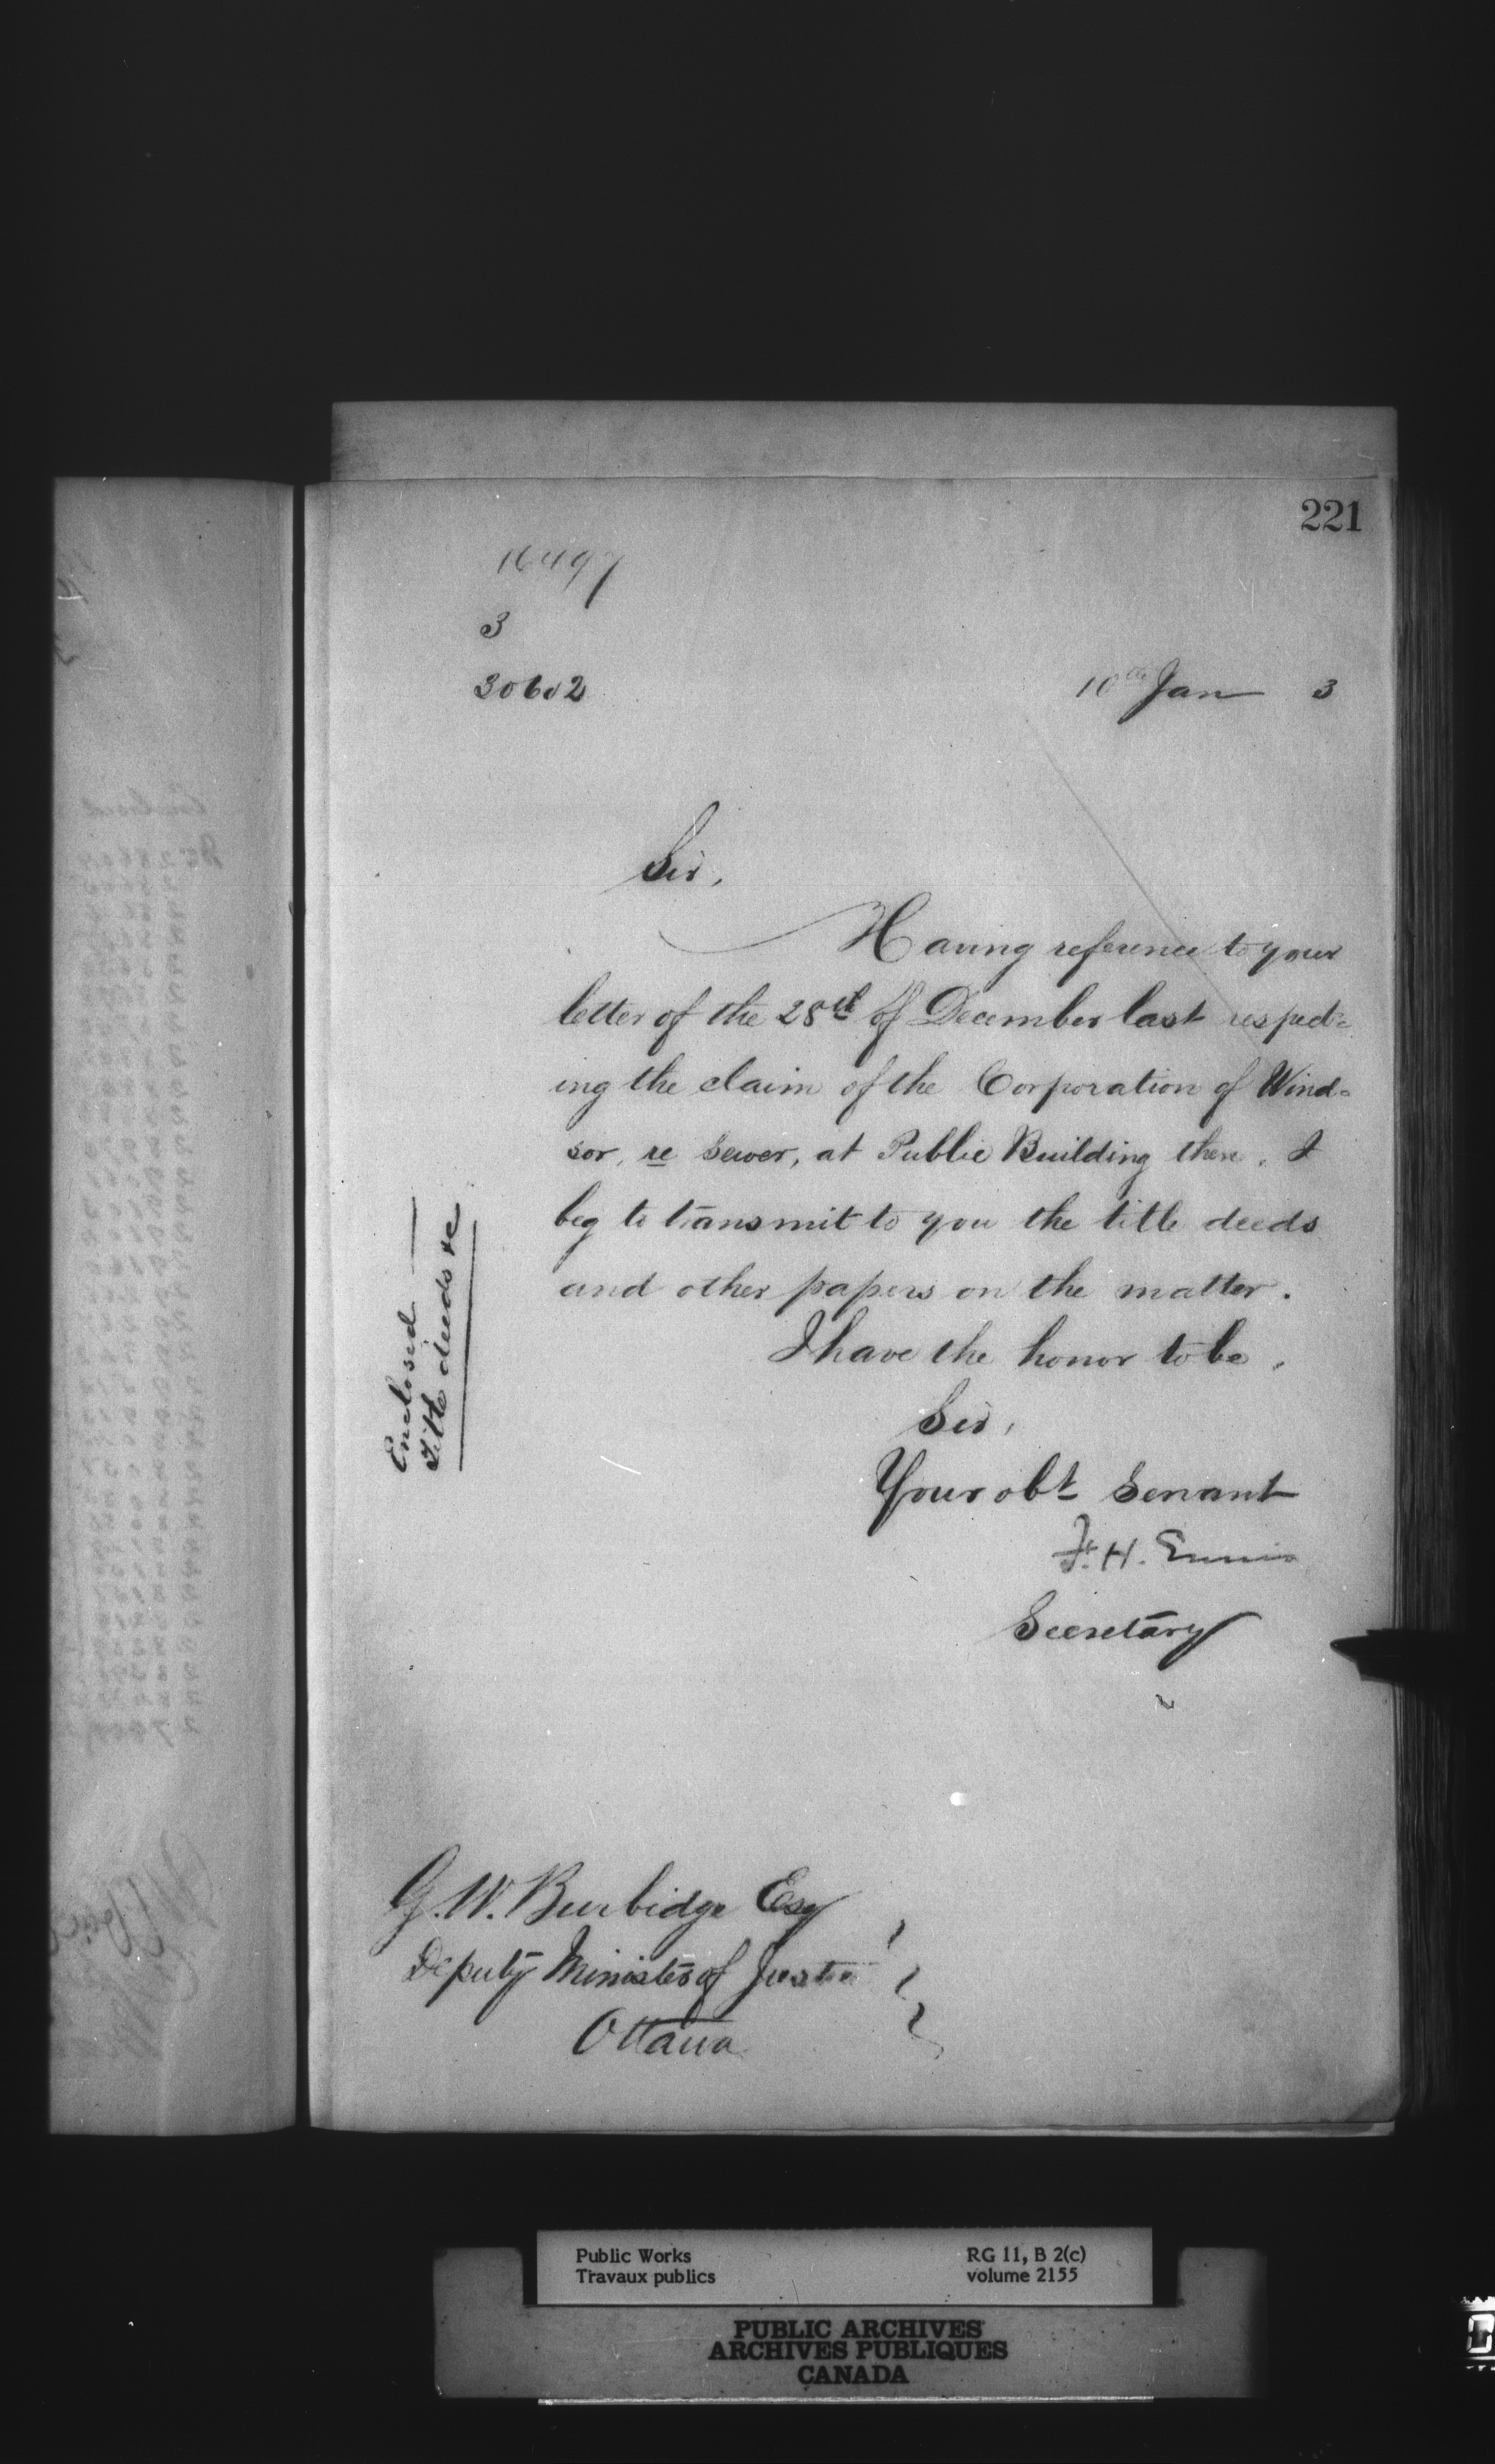 221
16497
3
30602
10th Jan 3
Sir,
Having reference to your
letter of the 28th of December last respect=
ing the claim of the Corporation of Wind=
sor, re sewer, at Public Building there. I
beg to transmit to you the title deeds
and other papers on the matter.
I have the honor to be,
Sir,
Your obt Servant
F. H. Ennis
Secretary
Enclosed
Title deeds &c
G. W. Burbidge Esq
Deputy Minister of Justice
Ottawa
Public Works
Travaux publics
RG 11, B 2(c)
volume 2155
PUBLIC ARCHIVES
ARCHIVES PUBLIQUES
CANADA